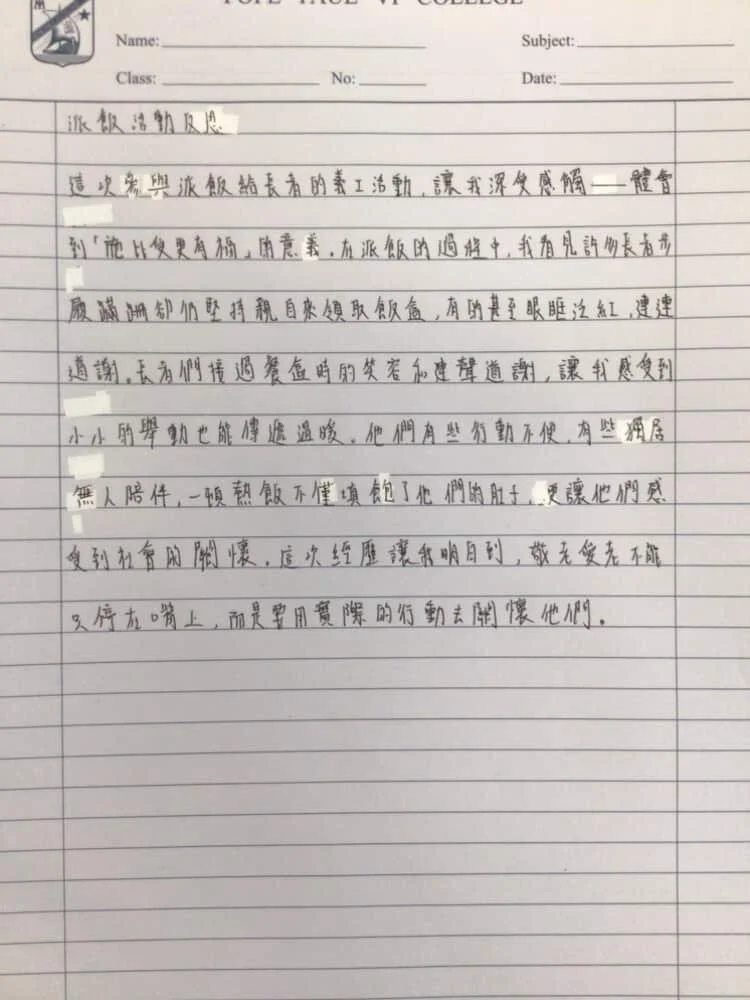 POPE PAUL VI COLLEGE
Name:
Subject:
Class:
No:
Date:
派飯活動反思
這次參與派飯給長者的義工活動，讓我深受感觸——體會
到「施比受更有福」的意義。在派飯的過程中，我看見許多長者步
履蹣跚卻仍堅持親自來領取飯盒，有的甚至眼眶泛紅，連連
道謝。長者們接過餐盒時的笑容和連聲道謝，讓我感受到
小小的舉動也能傳遞溫暖。他們有些行動不便，有些獨居
無人陪伴，一頓熱飯不僅填飽了他們的肚子，更讓他們感
受到社會的關懷。這次經歷讓我明白到，敬老愛老不能
只停在嘴上，而是要用實際的行動去關懷他們。